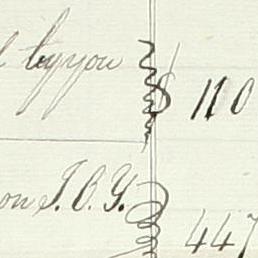 by you $ 110
on I.O.Y. 447